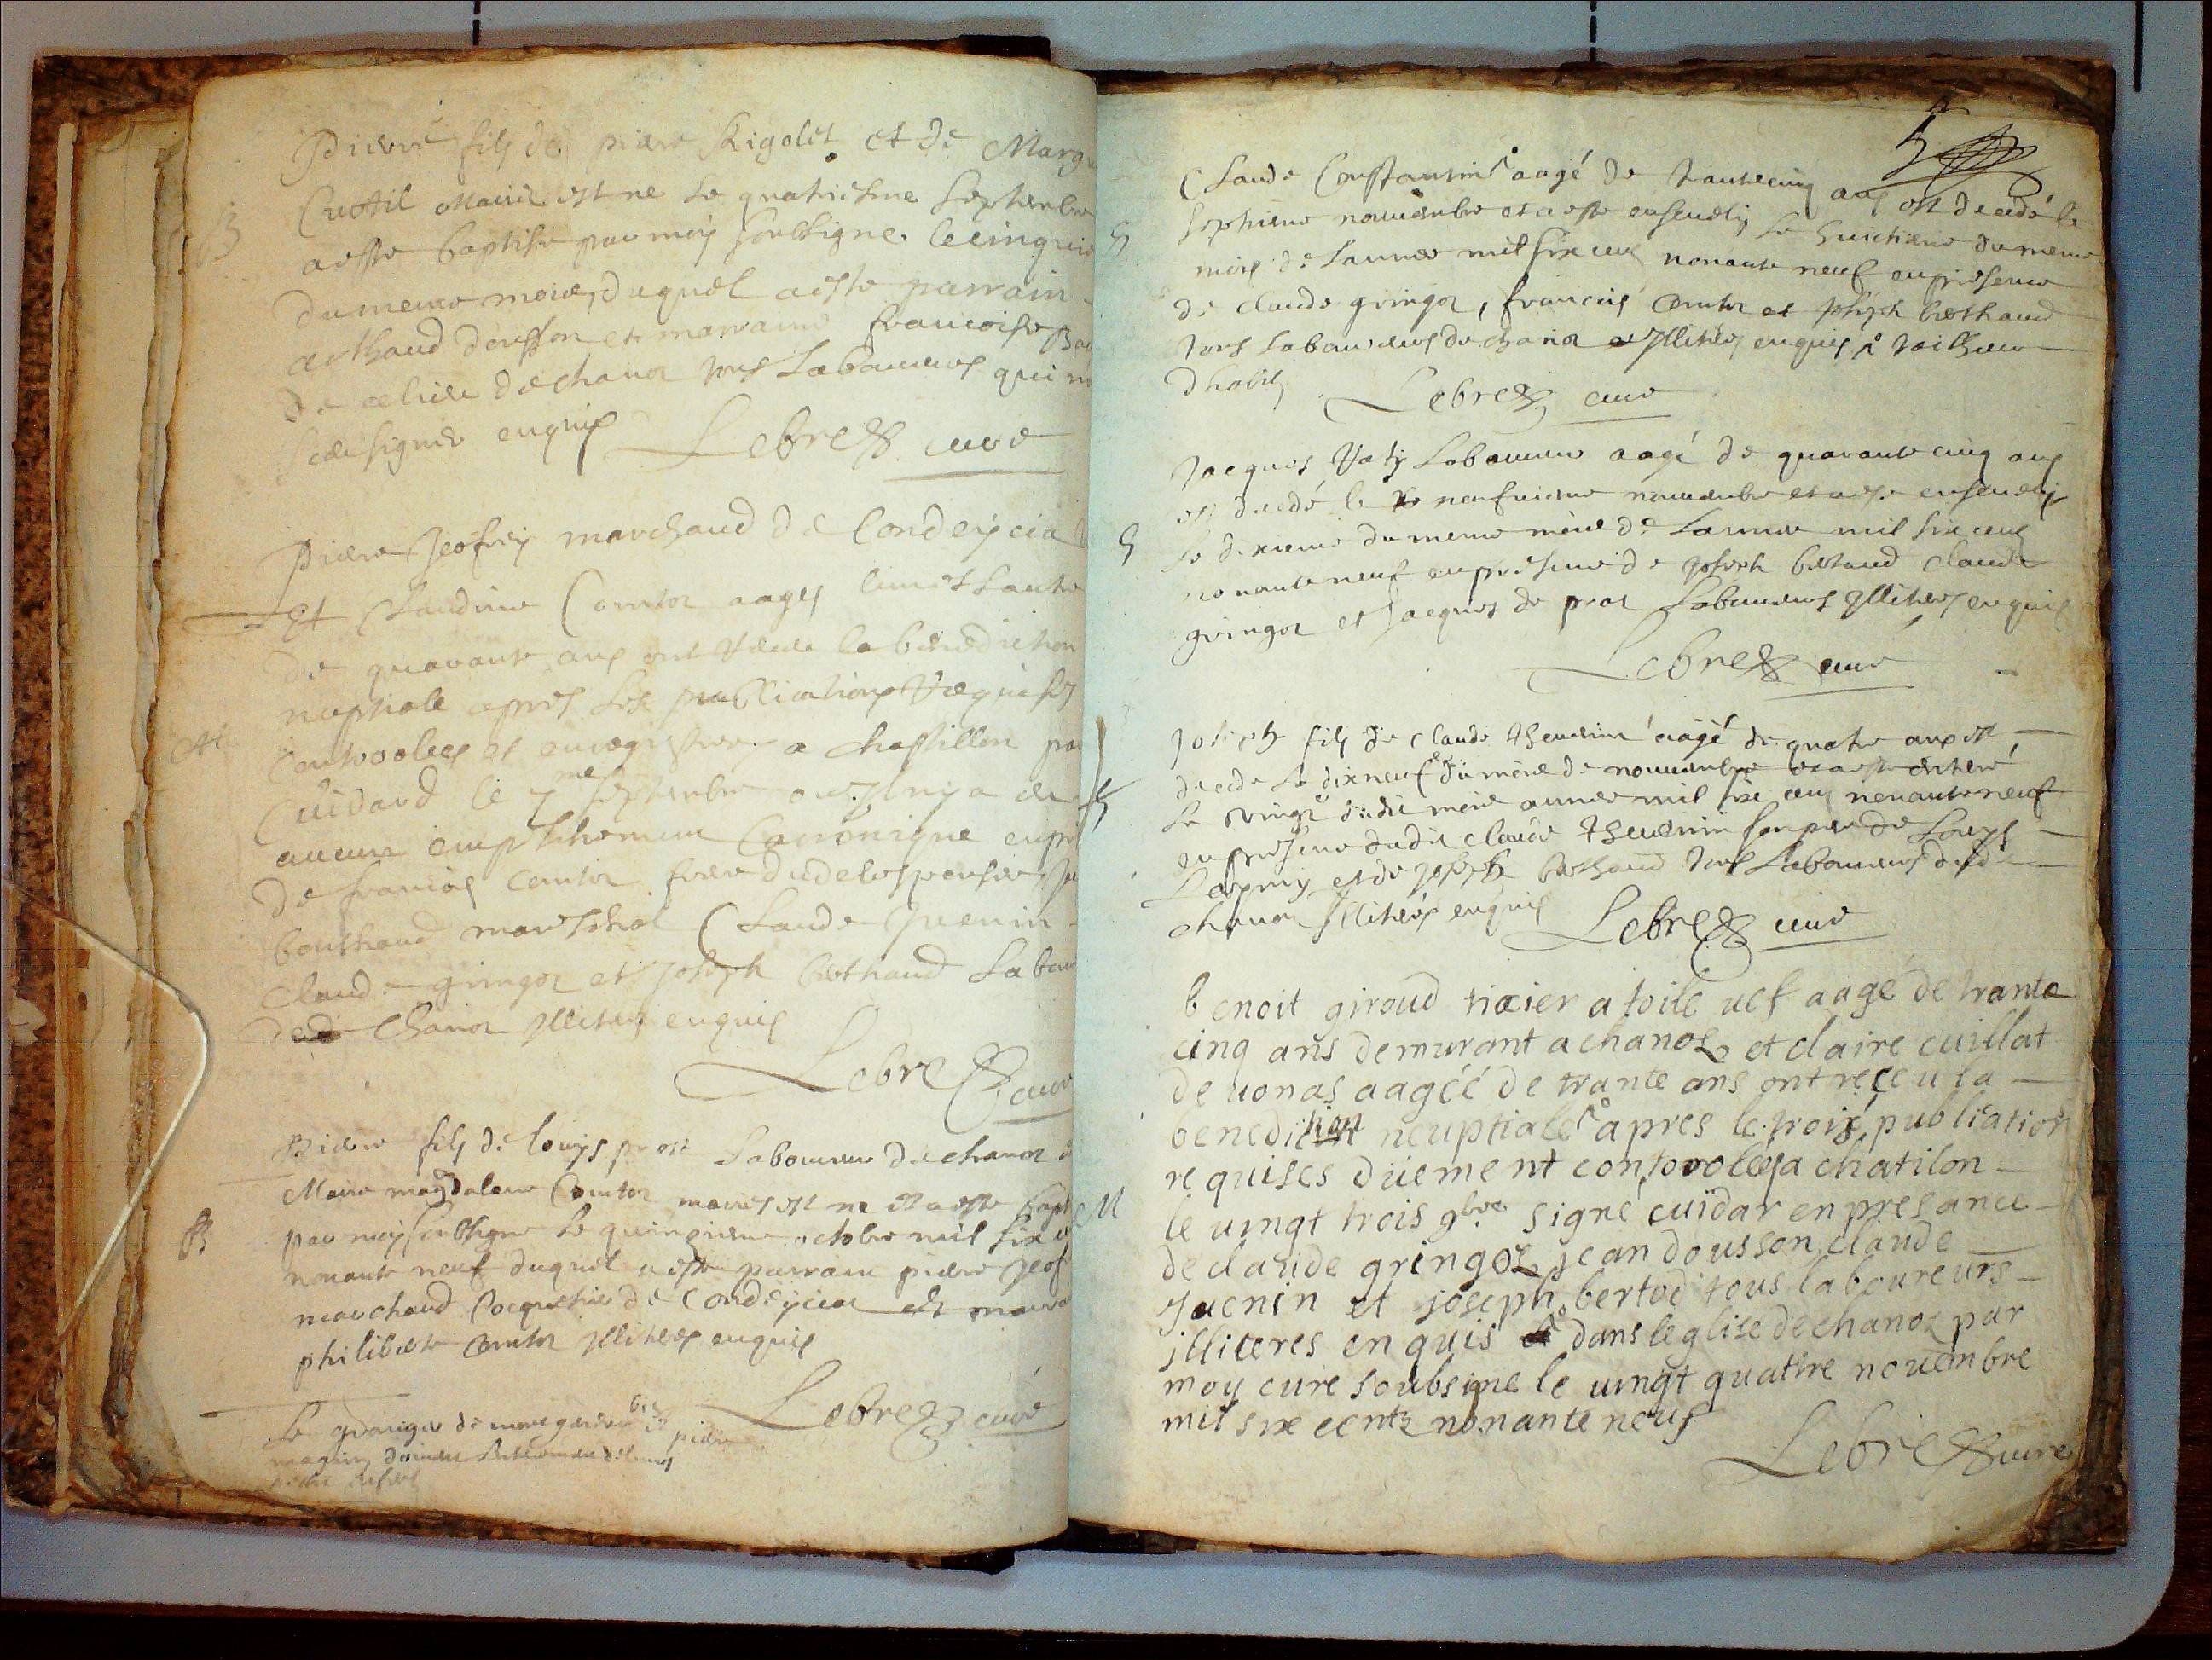 Pierre fils de pierre Rigolet et de Marg
Curtil mariés est ne le quatriesme septembre
B
a esté baptisé par moy soubsigné le cinquie
du mesme mois, duquel a esté parrain
berthaud dousson et marraine francoise
de chanoz tous Laboureurs qui n
signer enquis
Lebre curé
Pierre Jeofrey marchand de Condeycia
Et Claudine Comtor aagés l'un et l'autre
de quarante ans ont receu la benediction
nuptiale apres les publications requises
M
controolees et enregistrees a chastillon par
Cuidard le 7me septembre
aucun empeschement Canonique
de francois Comtor frere de espouse
berthaud mareschal Claude Juenin
claude gringoz et Joseph berthaud labou
chanoz illiteres enquis
Lebre curé
Pierre fils de louys prost Laboureur de chanoz
Marie magdelaine Comtor mariés est ne et a esté bapt
B
par moy soubsigné le quinzieme octobre mil six c
nonante neuf duquel a esté parrain pierre Jeof
marchand de Condeycia et marra
philiberte Comtor illiteres enquis
Lebre curé
5
Claude Constantin aagé de trantecinq ans est decedé le
septieme novembre et a esté ensevely le huictieme du mesme
S
mois de l'annee mil six cens nonante neuf en presence
de claude gringoz, francois Comtor et joseph berthaud
tous laboureurs de chanoz illiteres enquis
Lebre curé
Jacques Laboureur aagé de quarante cinq ans
est decedé le neufvieme novembre et a esté ensevely
S
le dixieme du mesme mois de l'annee mil six cens
nonante neuf en presence de joseph bertaud claude
gringoz et jacques de prost laboureurs illiteres enquis
Lebre curé
Joseph fils de claude thevenin aagé de quatre ans est
decedé le dixneuf du mois de novembre et a esté enterré
S
le vingt dudit mois annee mil six cens nonante neuf
en presence dudit claude thevenin son pere de Louys
et de joseph berthaud tous laboureurs dudit
chanoz illiteres enquis
Lebre curé
benoit giroud tixier a toile uef aagé de trante
cinq ans demurant a chanoz et claire cuillat
de uonas aagéé de trante ans ont receu la
benediction neuptiale apres le trois publication
requises düement controolleés a chatilon
M
le uingt trois 9bre signé cuidar en presance
de claude gringoz jean dousson claude
Juenin et joseph bertod tous laboureurs
illiteres enquis dans leglise de chanoz par
moy cure soubsine le uingt quattre nouembre
mil six centz nonante neuf
Lebre cure